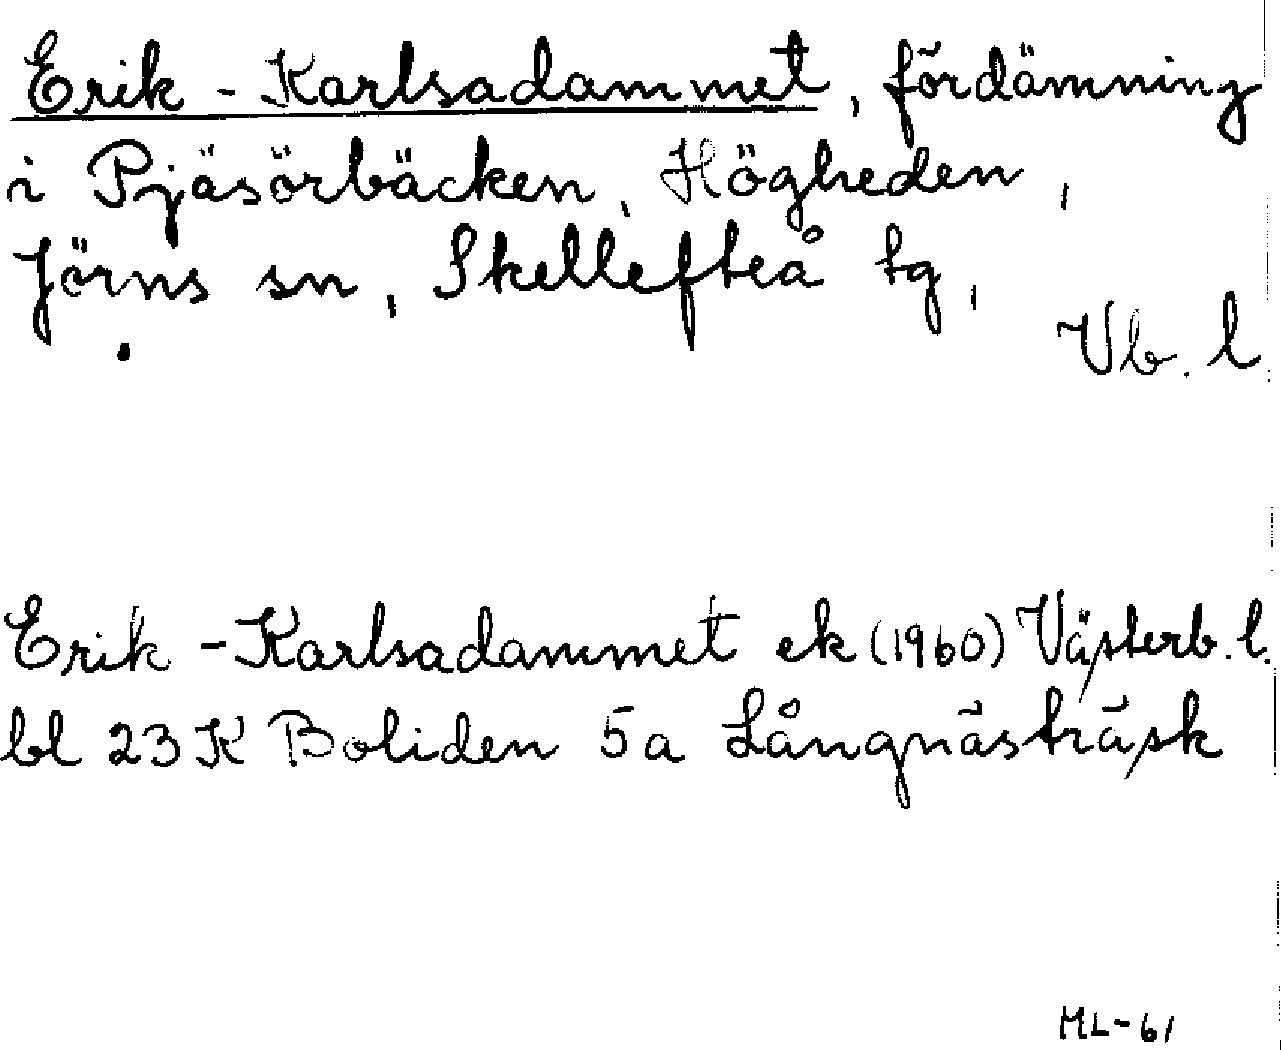 Erik-Karlsadammet, fördämning
i Pjäsörbäcken, Högheden,
Jörns sn, Skellefteå tg,
Vb. l
Erik-Karlsadammet ek (1960) Västerb. l.
bl 23 K Boliden 5a Långnästräsk
ML-61